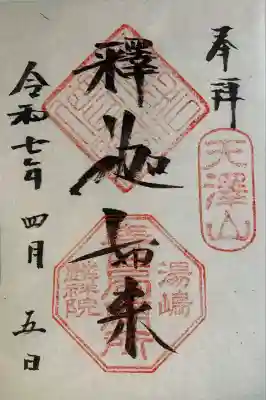 奉拝
天澤山
釋迦如来
湯嶋
麟祥院
令和七年 四月 五日